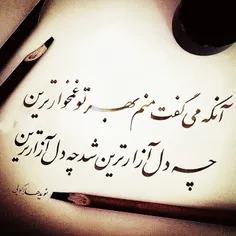 آنکه می گفت منم بهر تو غمخوارترین
چه دل آزارترین شد چه دل آزارترین